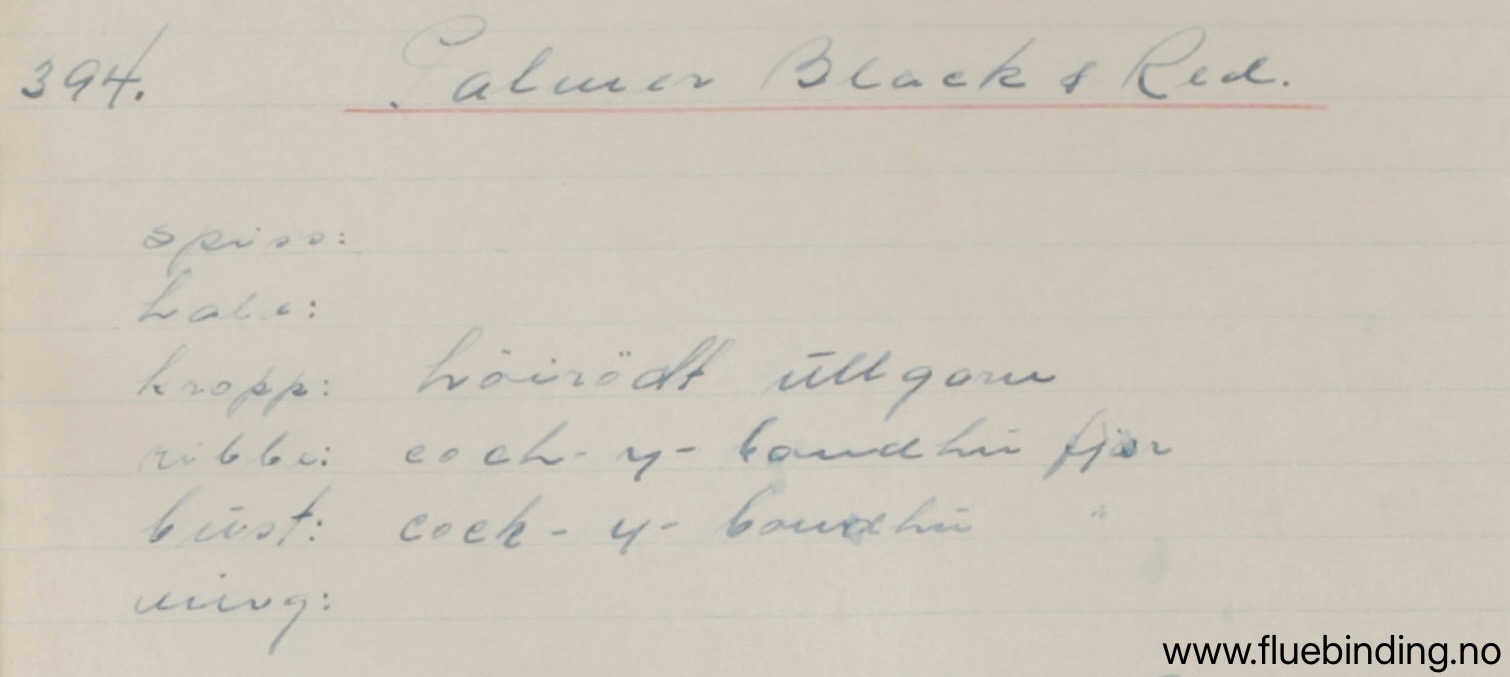 394. Palmer Black & Red.
spiss:
hale:
kropp: höirödt ullgarn
ribbe: coch-y-bondhu fjær
bust: cock-y-bondhu "
ving:
www.fluebinding.no